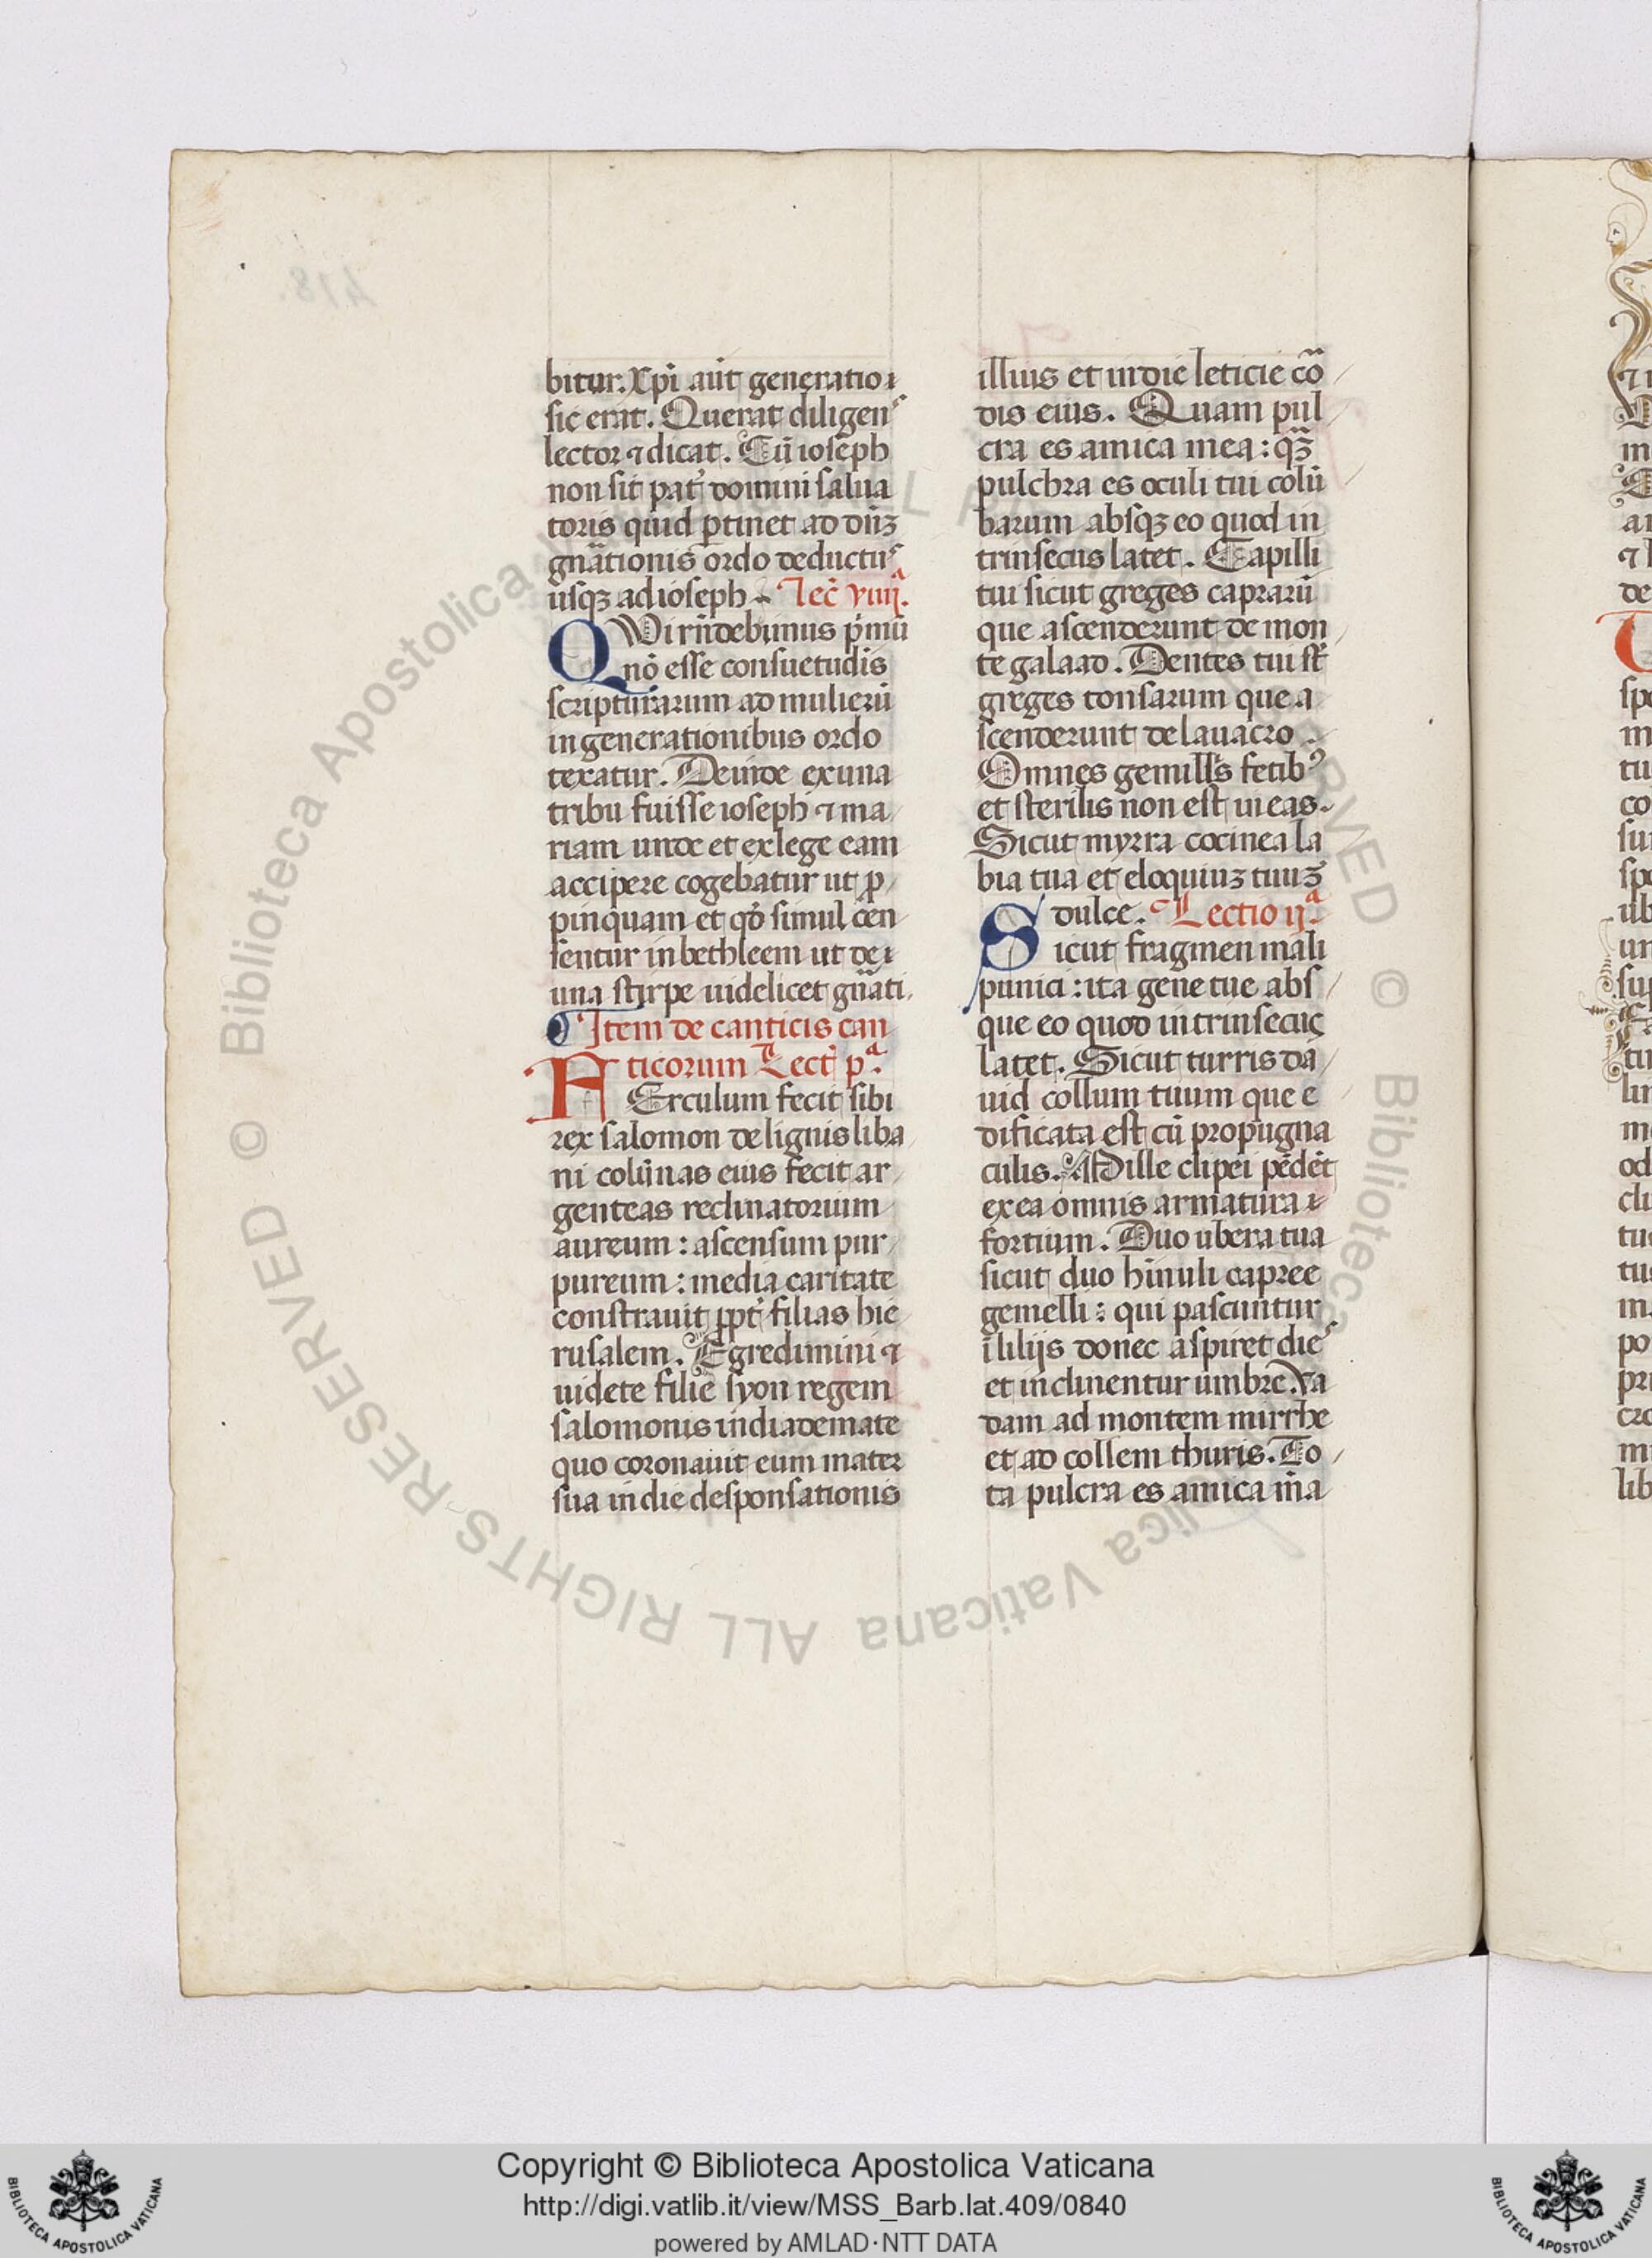 bitur. xp̄i aūt generatio
sic erat. Querat diligens
lector ⁊ dicat. Cū ioseph
non sit pat̄ domini salua
toris quid ꝑtinet ad dn̄ꝫ
gn̄ationis ordo deductus
usqꝫ ad ioseph. Lec̄ viiij.ª
QVi rn̄debimus pͥmū
nō esse consuetudīs
scripturarum ad mulierū
in generationibus ordo
texatur. Deinde ex una
tribu fuisse ioseph ⁊ ma
riam unde et ex lege eam
accipere cogebatur ut ꝓ
pinquam et qͦ simul cen
sentur in bethleem ut de
una stirpe uidelicet gn̄ati.
¶ Item de canticis can
ticorum Lect̄ p.ª
FErculum fecit sibi
rex salomon de lignis liba
ni colūnas eius fecit ar
genteas reclinatorium
aureum : ascensum pur
pureum : media caritate
constrauit ꝓpt̄ filias hie
rusalem. Egredimini ⁊
uidete filie syon regem
salomonis in diademate
quo coronauit eum mater
sua in die desponsationis
illius et in die leticie cō
dis eius. Quam pul
cra es amica mea : qꝫ̄
pulchra es oculi tui colū
barum absqꝫ eo quod in
trinsecus latet. Capilli
tui sicut greges caprarū
que ascenderunt de mon
te galaad. Dentes tui st̄
greges tonsarum que a
scenderunt de lauacro
Omnes gemill's fetibꝰ
et sterilis non est in eas.
Sicut myrra cocinea la
bia tua et eloquiuꝫ tuuꝫ
dulce. Lectio ij.ª
Sicut fragmen mali
punici : ita gene tue abs
que eo quod intrinsecus
latet. Sicut turris da
uid collum tuum que e
dificata est cū propugna
culis. Mille clipei pēdēt
ex ea omnis armatura
fortium. Duo ubera tua
sicut duo hinuli capree
gemelli : qui pascuntur
ī lilijs donec aspiret dies
et inclinentur umbre. Va
dam ad montem mirrhe
et ad collem thuris. To
ta pulcra es amica m̄a
© Biblioteca Apostolica Vaticana ALL RIGHTS RESERVED
Copyright © Biblioteca Apostolica Vaticana
http://digi.vatlib.it/view/MSS_Barb.lat.409/0840
powered by AMLAD·NTT DATA
BIBLIOTECA APOSTOLICA VATICANA
BIBLIOTECA APOSTOLICA VATICANA